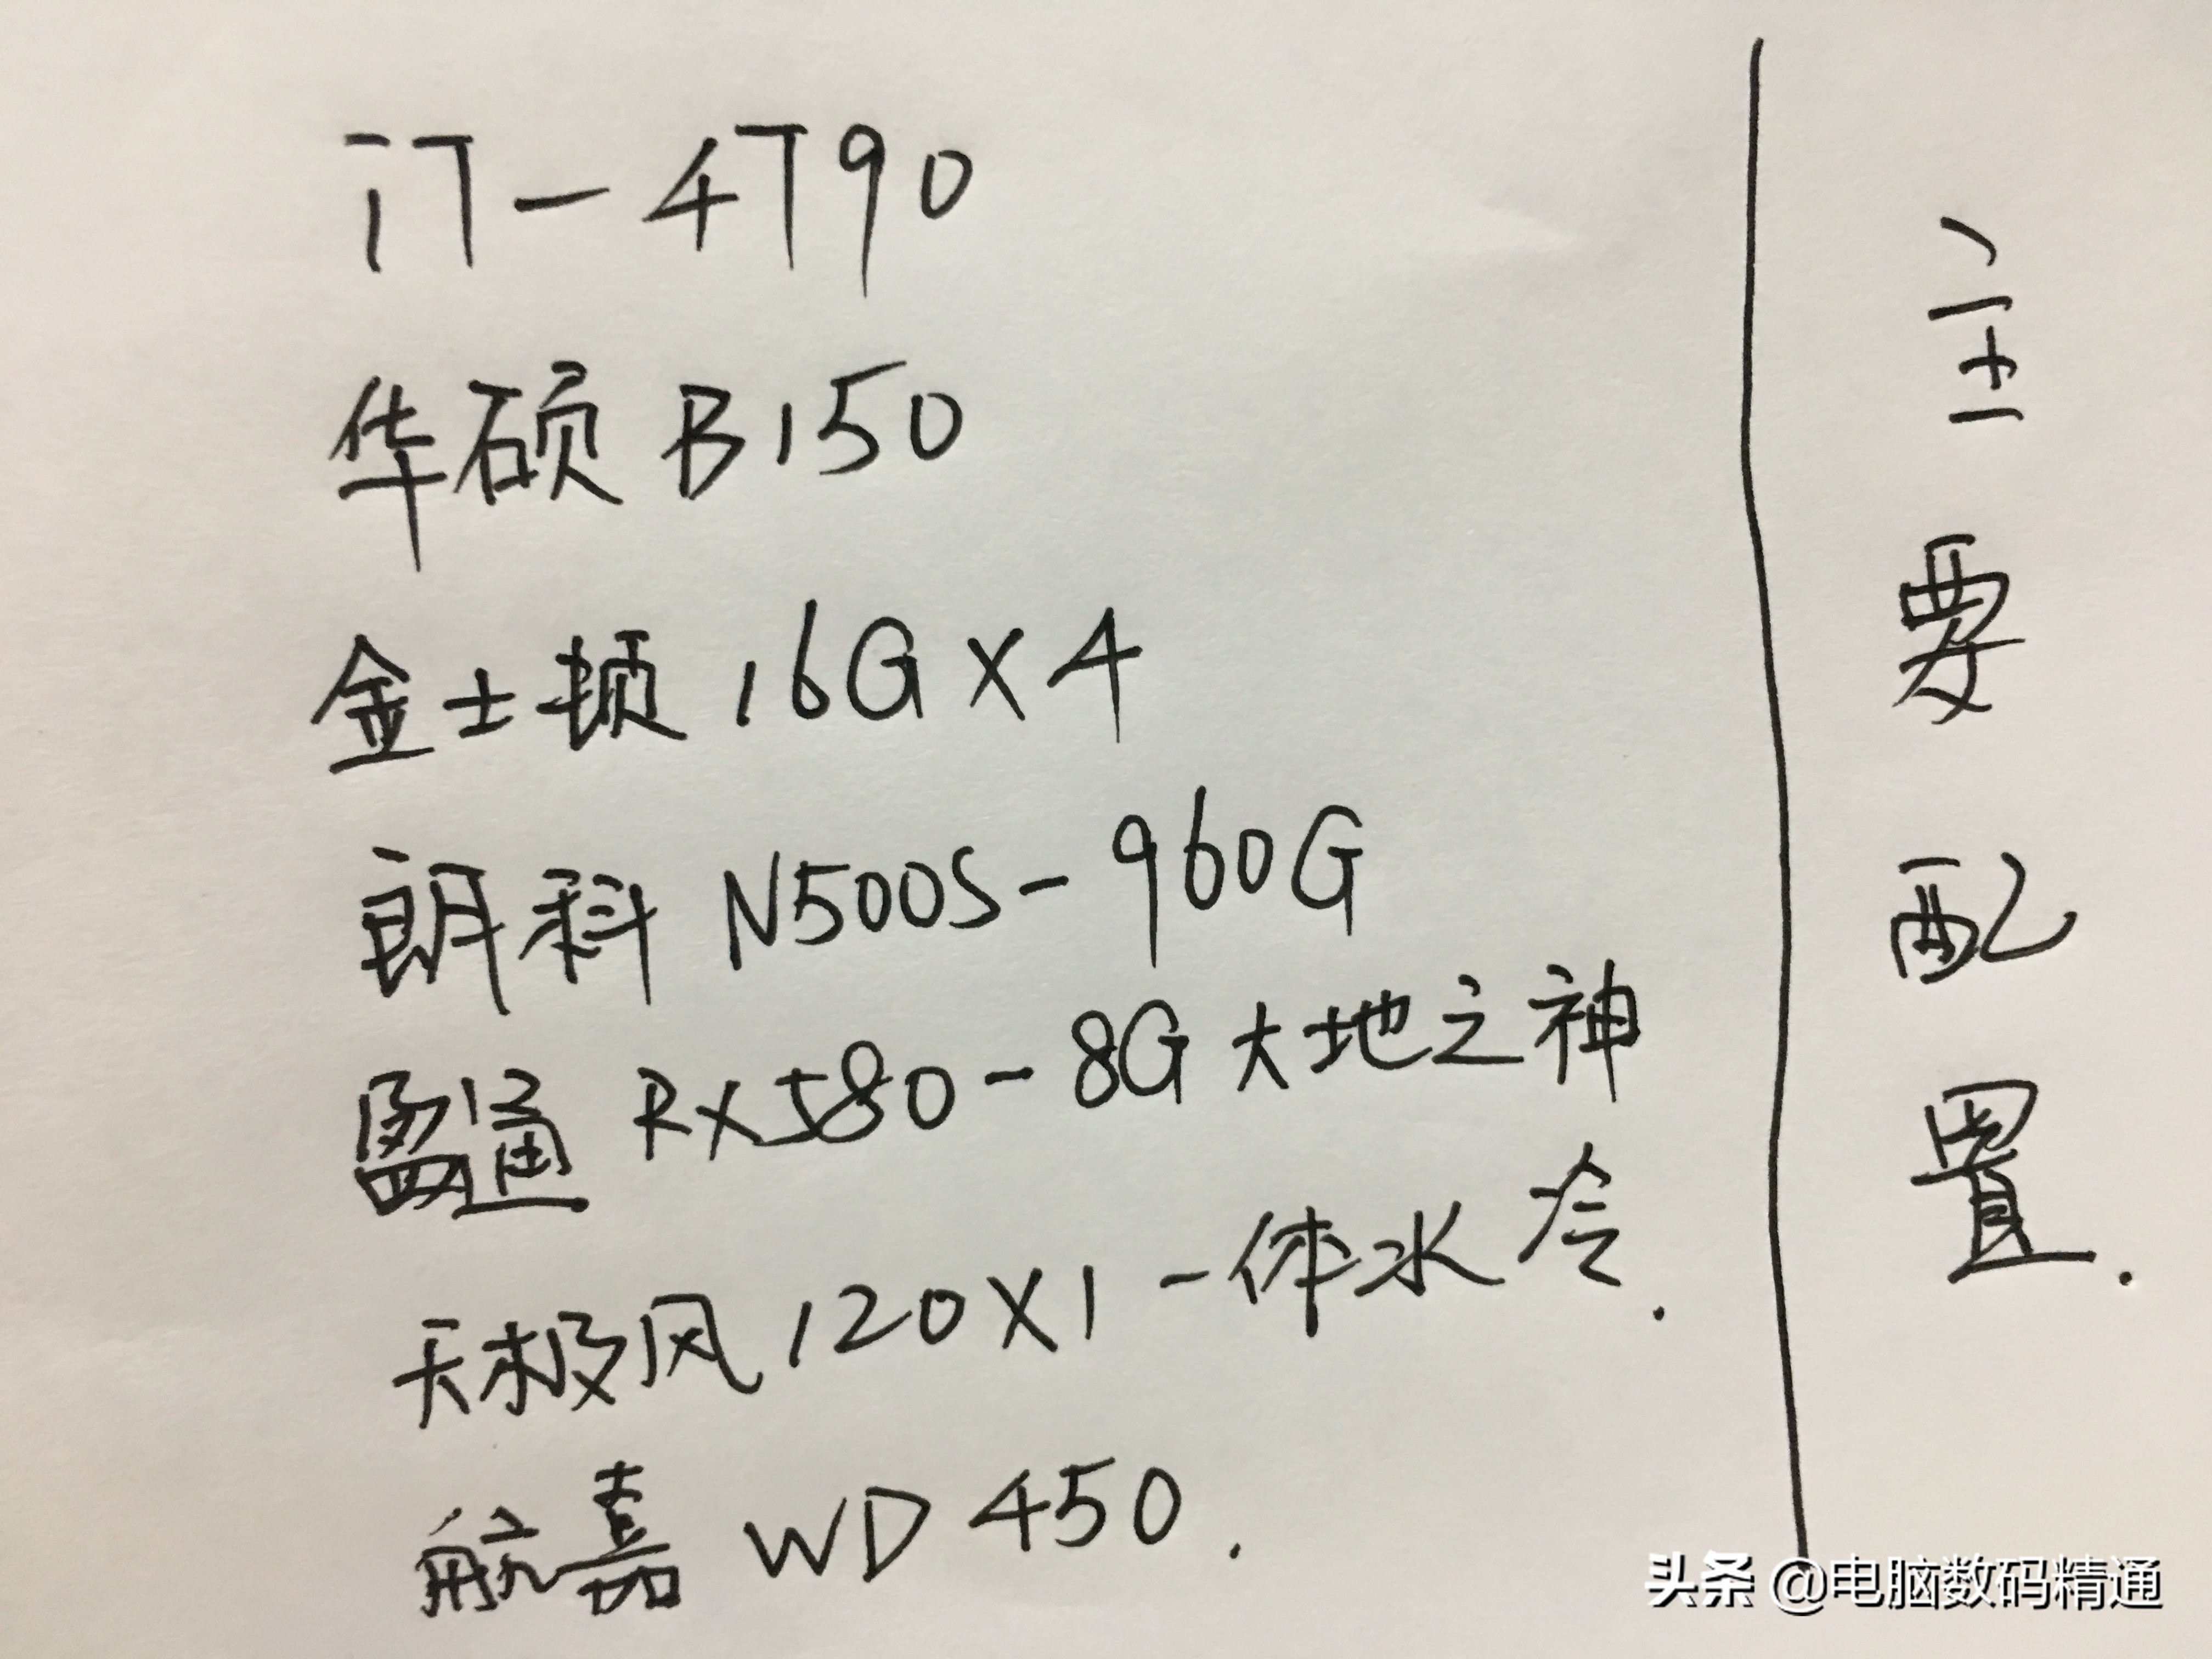 i7-4790
华硕 B150
金士顿 16G×4
朗科 N500S-960G
盈通 RX580-8G 大地之神
天极风 120X1 一体水冷.
航嘉 WD 450.
主要配置.
头条 @电脑数码精通